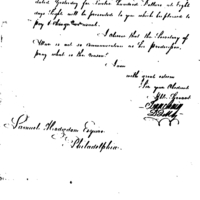 dated Yesterday for Twelve Hundred Dollars at Eight
days sight will be presented to you which be pleased to
pay & charge
I observe that the Secretary of
War is not so communicative as the
pray what is the reason?
I am
with great esteem
Sir your Obedient
Hble Servant
Samuel Hodgdon Esquire
Philadelphia